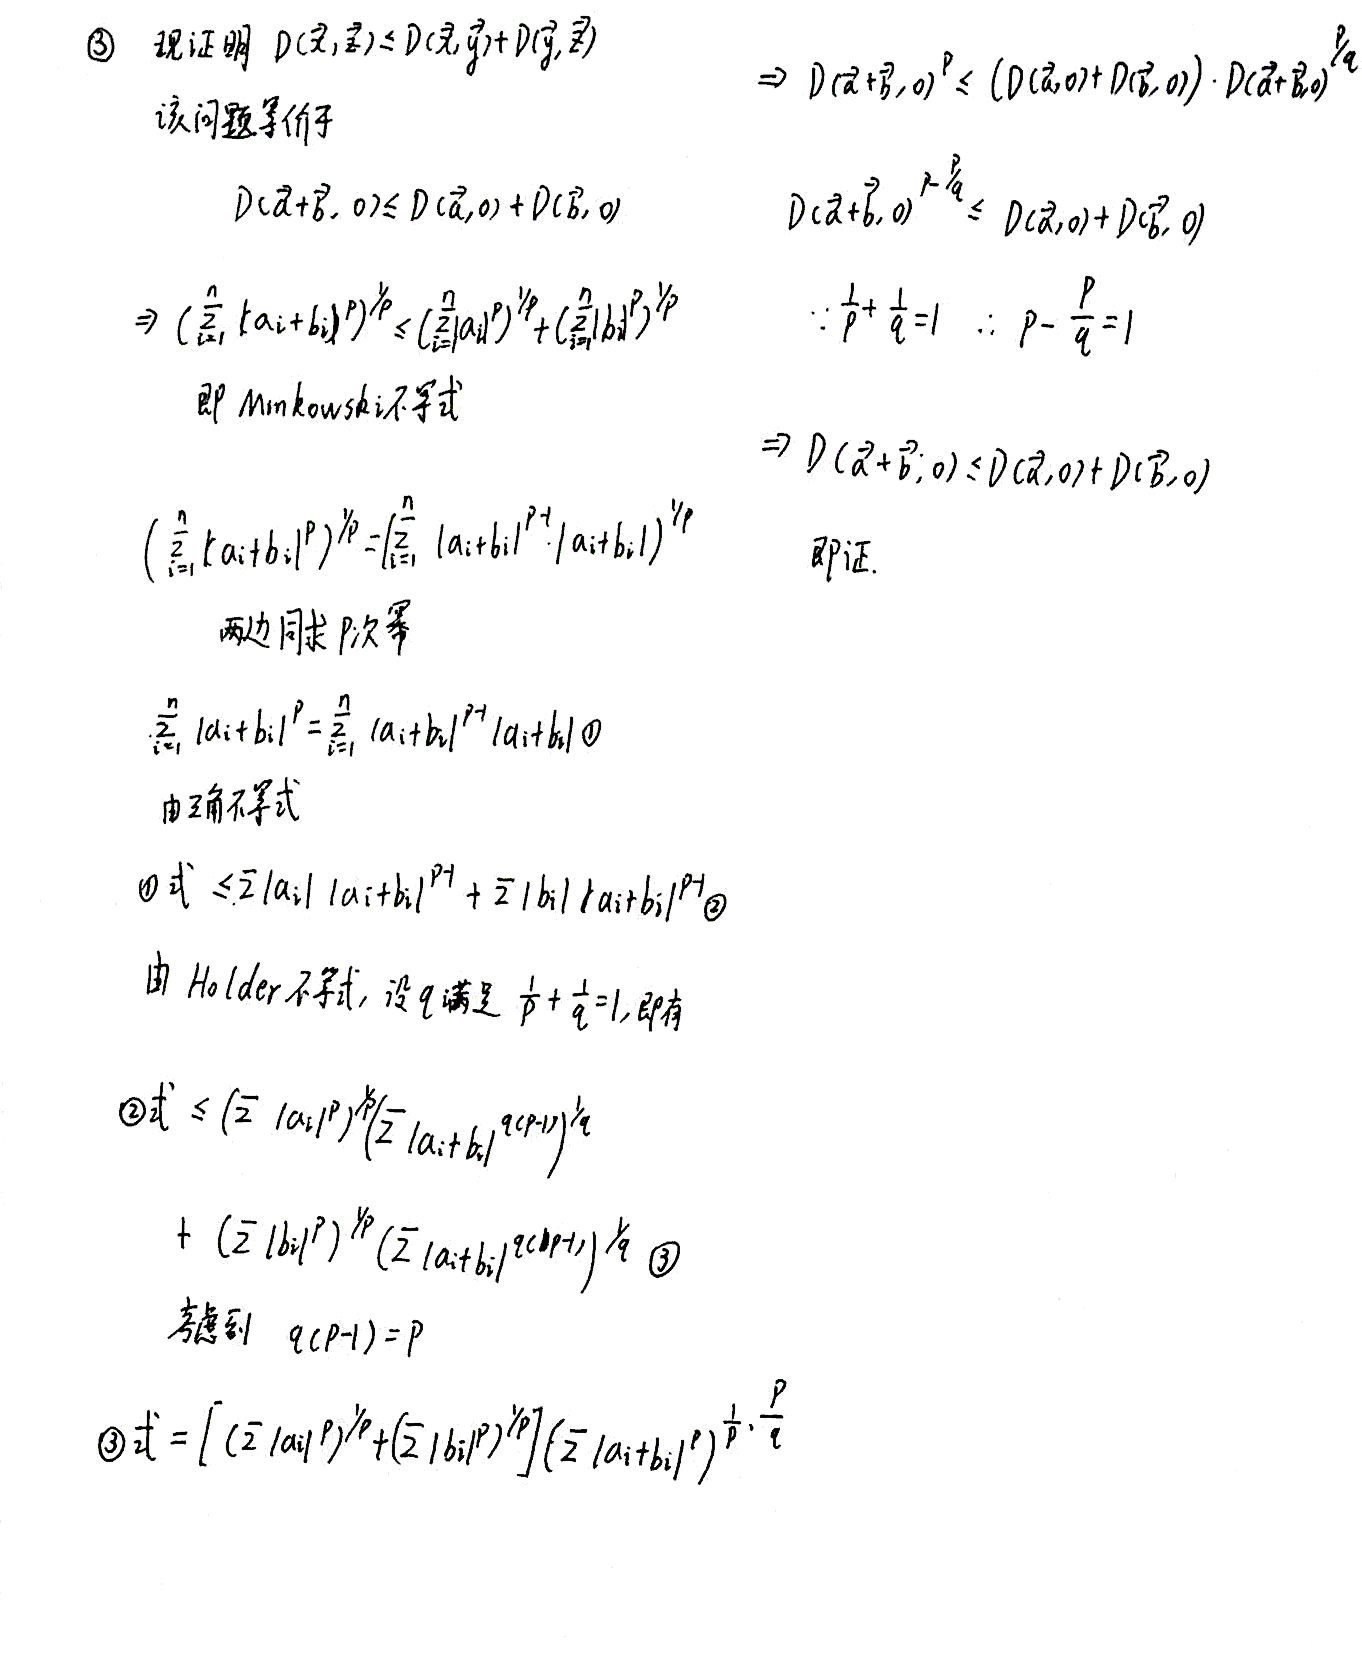 ③ 现证明 D(x⃗, z⃗) ≤ D(x⃗, y⃗) + D(y⃗, z⃗)
该问题等价于
D(a⃗+b⃗, 0) ≤ D(a⃗, 0) + D(b⃗, 0)
⇒ (∑_{i=1}^{n} |a_i+b_i|^p)^{1/p} ≤ (∑_{i=1}^{n} |a_i|^p)^{1/p} + (∑_{i=1}^{n} |b_i|^p)^{1/p}
即 Minkowski 不等式
(∑_{i=1}^{n} |a_i+b_i|^p)^{1/p} = (∑_{i=1}^{n} |a_i+b_i|^{p-1} · |a_i+b_i|)^{1/p}
两边同求 p次幂
∑_{i=1}^{n} |a_i+b_i|^p = ∑_{i=1}^{n} |a_i+b_i|^{p-1} |a_i+b_i| ①
由三角不等式
①式 ≤ ∑|a_i| |a_i+b_i|^{p-1} + ∑|b_i| |a_i+b_i|^{p-1} ②
由 Holder 不等式, 设 q 满足 1/p + 1/q = 1, 即有
②式 ≤ (∑|a_i|^p)^{1/p} (∑|a_i+b_i|^{q(p-1)})^{1/q}
+ (∑|b_i|^p)^{1/p} (∑|a_i+b_i|^{q(p-1)})^{1/q} ③
考虑到 q(p-1) = p
③式 = [(∑|a_i|^p)^{1/p} + (∑|b_i|^p)^{1/p}] (∑|a_i+b_i|^p)^{1/p · p/q}
⇒ D(a⃗+b⃗, 0)^p ≤ (D(a⃗, 0) + D(b⃗, 0)) · D(a⃗+b⃗, 0)^{p/q}
D(a⃗+b⃗, 0)^{p-p/q} ≤ D(a⃗, 0) + D(b⃗, 0)
∵ 1/p + 1/q = 1 ∴ p - p/q = 1
⇒ D(a⃗+b⃗, 0) ≤ D(a⃗, 0) + D(b⃗, 0)
即证.